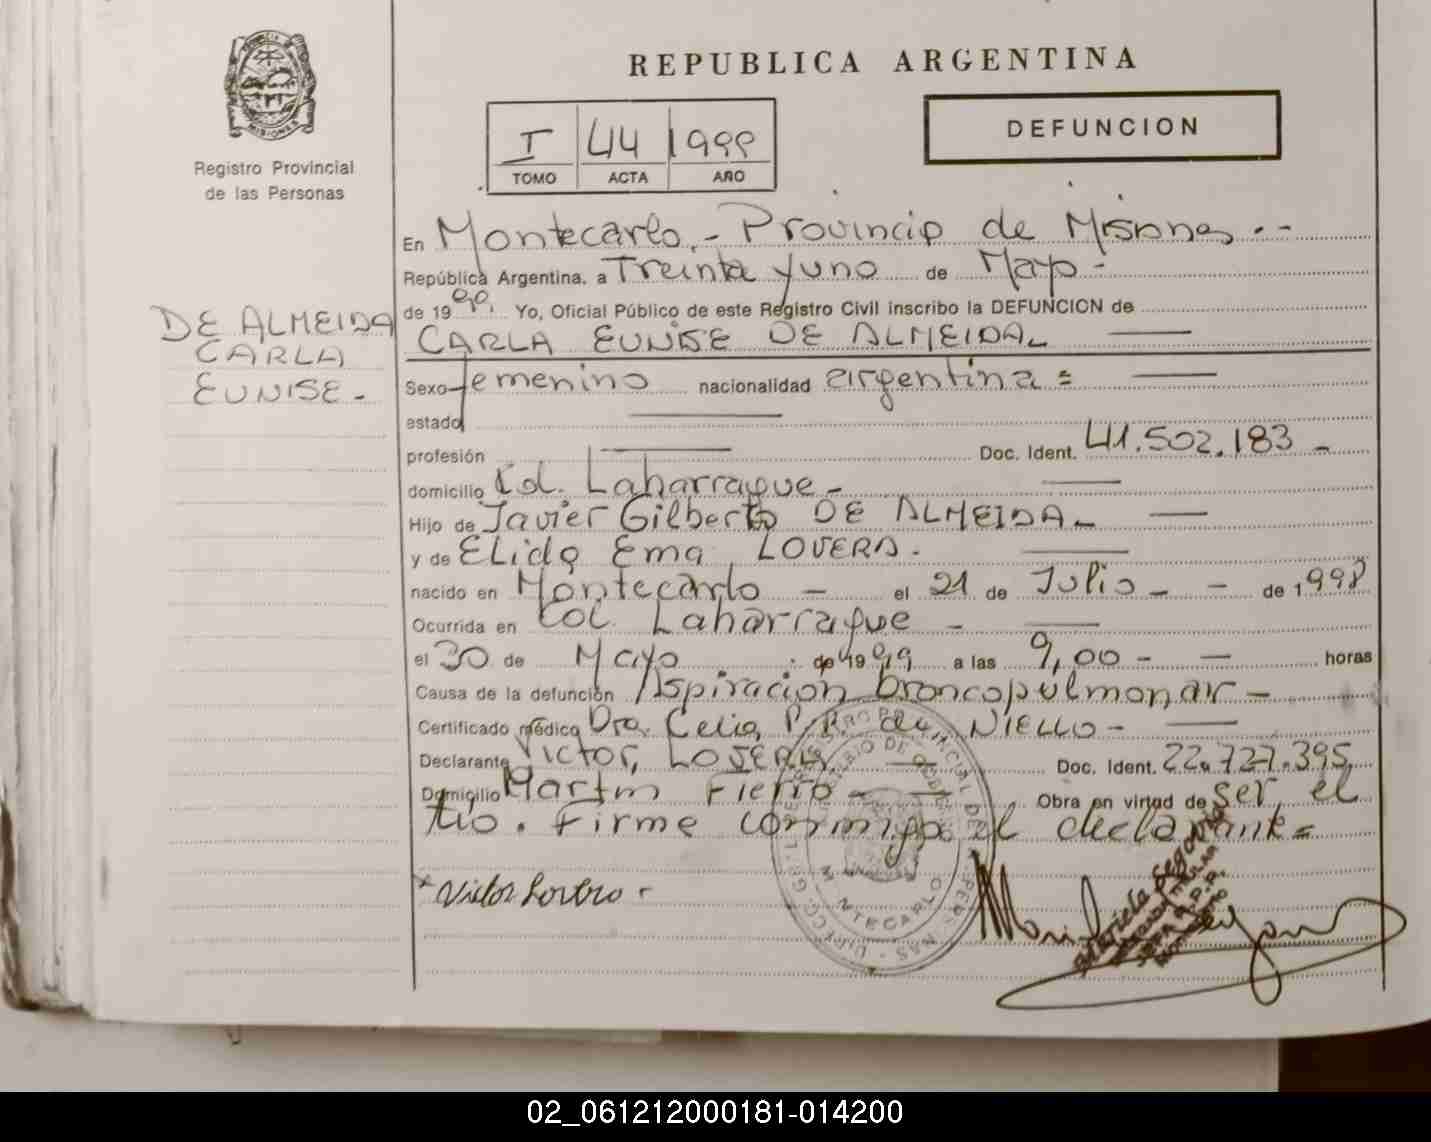 REPUBLICA ARGENTINA
MISIONES
Registro Provincial
de las Personas
I 44 1999
TOMO ACTA AÑO
DEFUNCION
DE ALMEIDA
CARLA
EUNISE -
En Montecarlo.- Provincia de Misiones.--
República Argentina, a Treinta y uno de Mayo -
de 1999. Yo, Oficial Público de este Registro Civil inscribo la DEFUNCION de
CARLA EUNISE DE ALMEIDA.
Sexo femenino nacionalidad argentina =
estado
profesión Doc. Ident. 41.502.183 -
domicilio Col. Laharrague -
Hijo de Javier Gilberto DE ALMEIDA -
y de Elida Ema LOVERA.
nacido en Montecarlo - el 21 de Julio - - de 1998
Ocurrida en Col. Laharrague -
el 30 de Mayo de 1999 a las 9,00 - - horas
Causa de la defunción Aspiracion broncopulmonar -
Certificado médico Dra. Celia P.R. de NIELLO -
Declarante Victor LOVERA Doc. Ident. 22.727.395
Domicilio Martin Fierro - Obra en virtud de ser el
tio. Firme conmigo el declarante =
Victor Lovera -
MONTECARLO
02_061212000181-014200